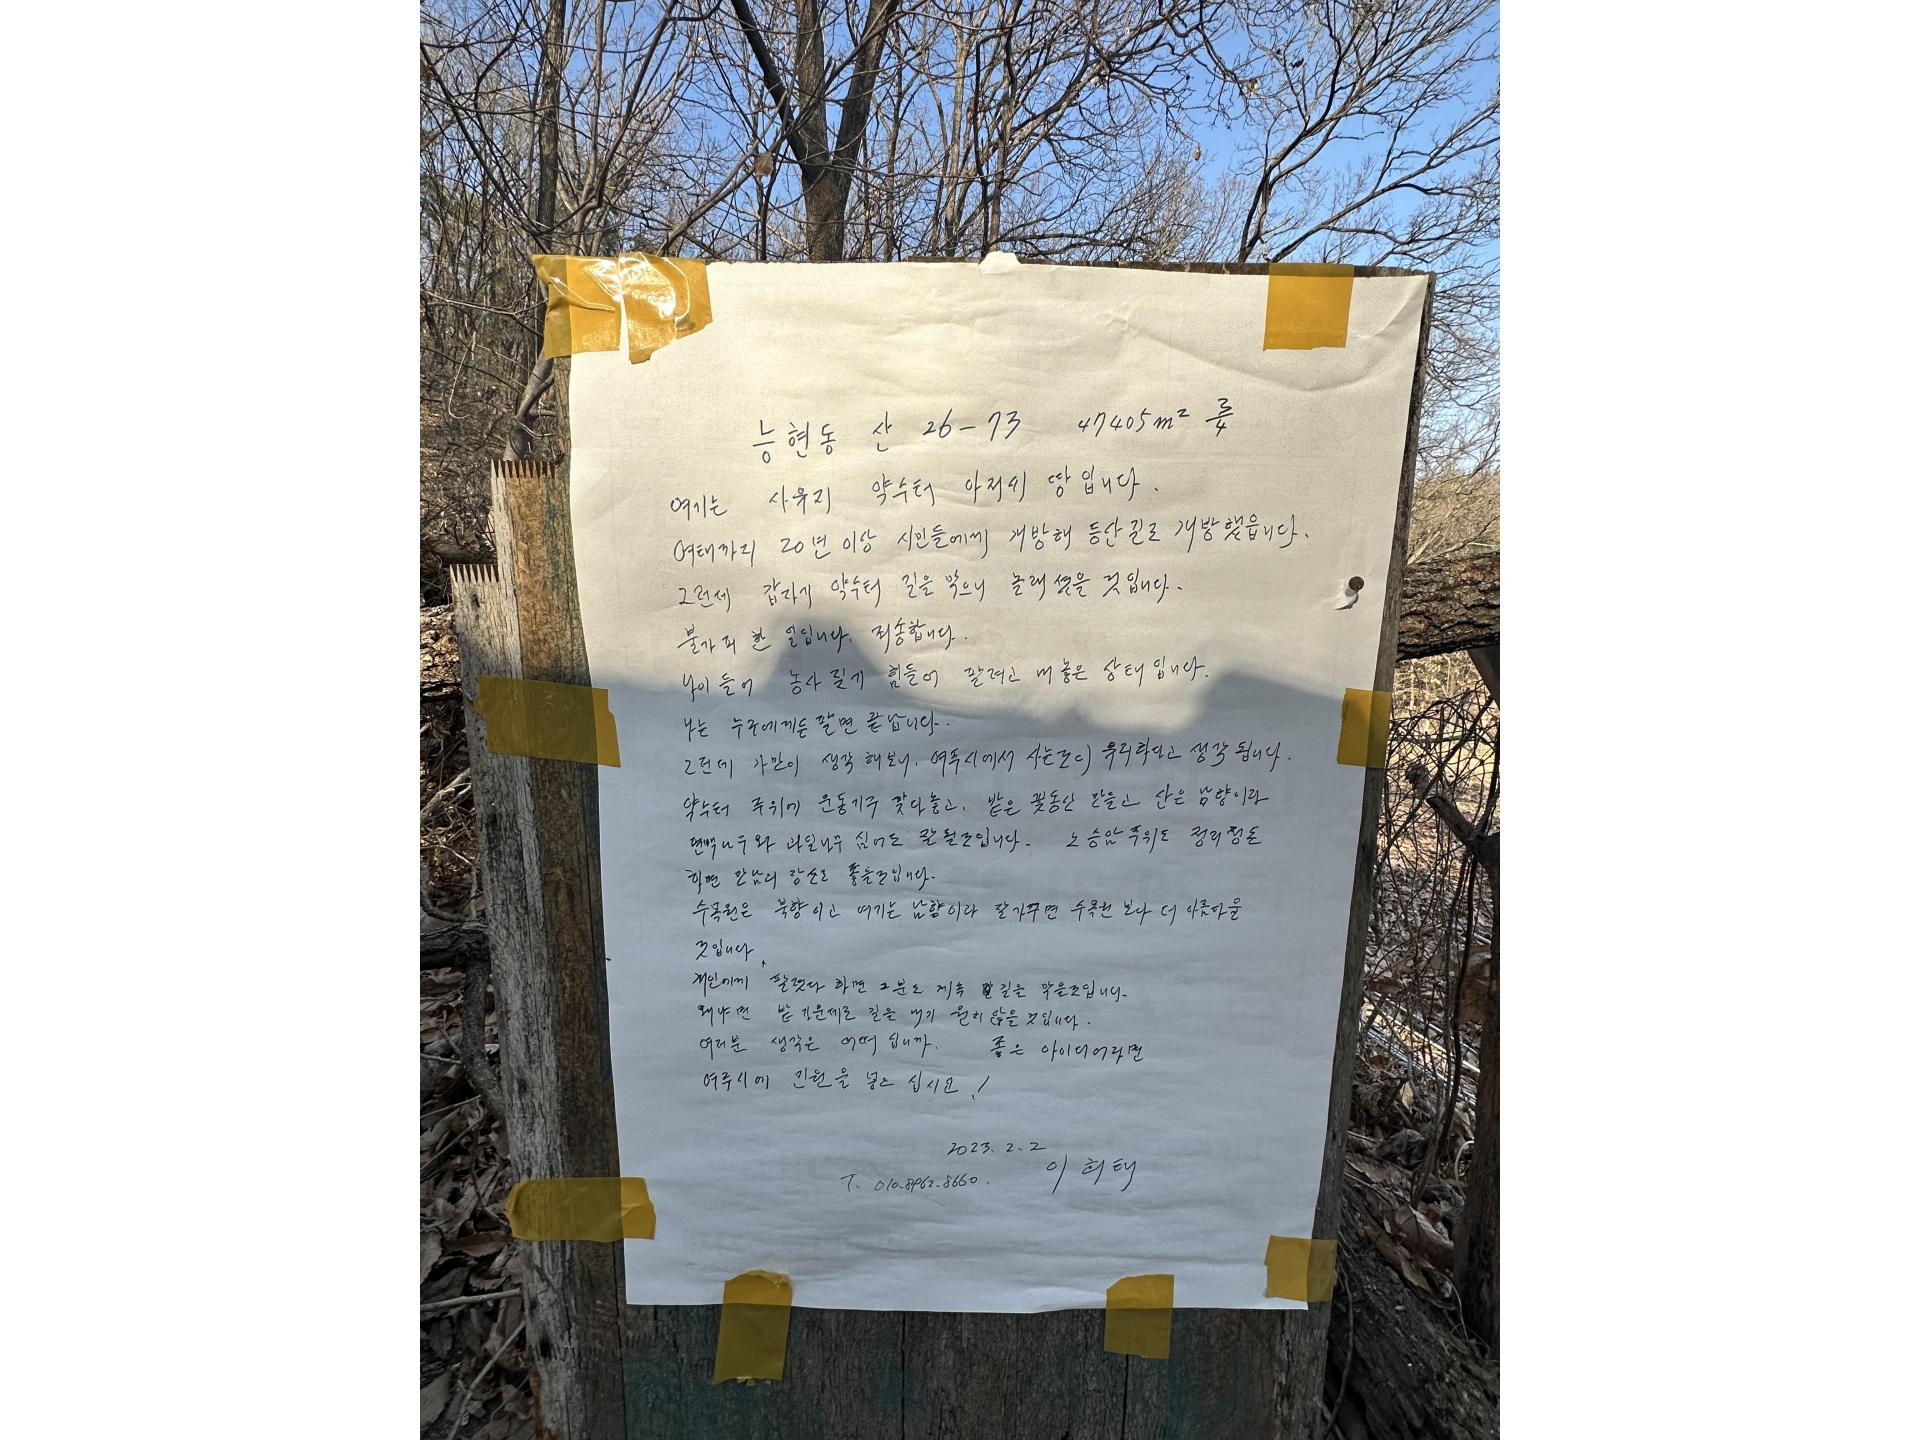 능현동 산 26-73 47405m²
여기는 사유지 약수터 아저씨 땅입니다.
여태까지 20년 이상 시민들에게 개방해 등산길로 개방했읍니다.
그런데 갑자기 약수터 길을 막으니 놀래셨을 것입니다.
불가피한 일입니다. 죄송합니다.
나이들어 농사 짓기 힘들어 팔려고 내놓은 상태입니다.
나는 누구에게든 팔면 끝납니다.
그런데 가만이 생각해보니, 여주시에서 사는것이 유리하다고 생각됩니다.
약수터 주위에 운동기구 갖다놓고, 밭은 꽃동산 만들고 산은 남향이라
편백나무와 과일나무 심어도 잘 될것입니다. 노승암주위도 정리정돈
하면 만남의 장소로 좋을것입니다.
수목원은 북향이고 여기는 남향이라 잘가꾸면 수목원 보다 더 아름다울
것입니다.
개인에게 팔렸다 하면 그분도 계속 길을 막을것입니다.
왜냐면 밭 가운데로 길을 내기 원치 않을 것입니다.
여러분 생각은 어떠 십니까. 좋은 아이디어라면
여주시에 민원을 넣으십시요!
2023. 2. 2
이희택
T. 010-8962-8660.